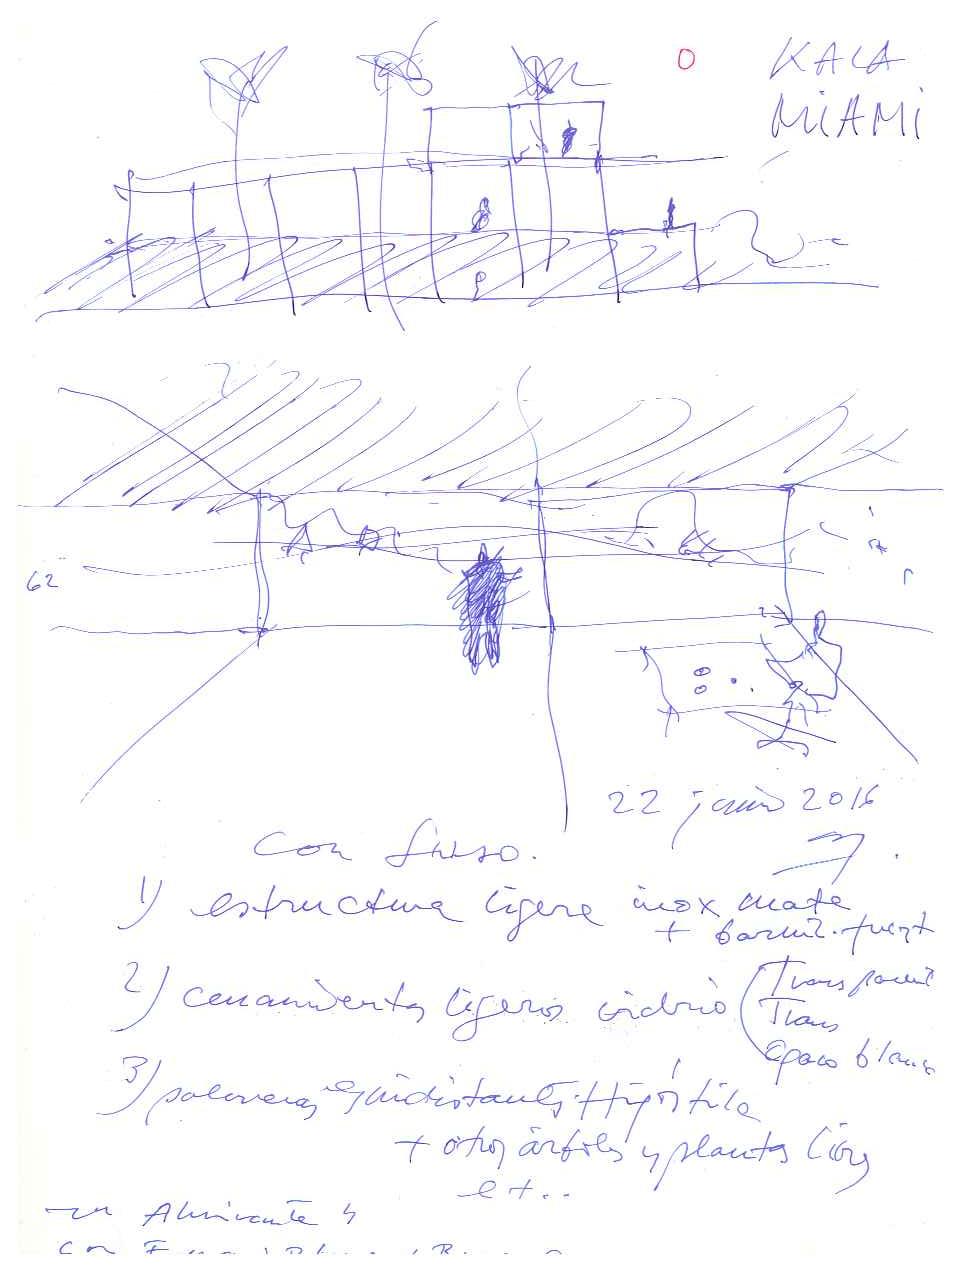 KALA
MIAMI
62
22 junio 2016
Con
1) estructura ligera inox mate
+
2) cerramientos ligeros vidrio (Transparent
Trans
Opaco blanco
3) palmeras equidistantes. Hipóstila
+ otros árboles y plantas
et..
Almirante
con